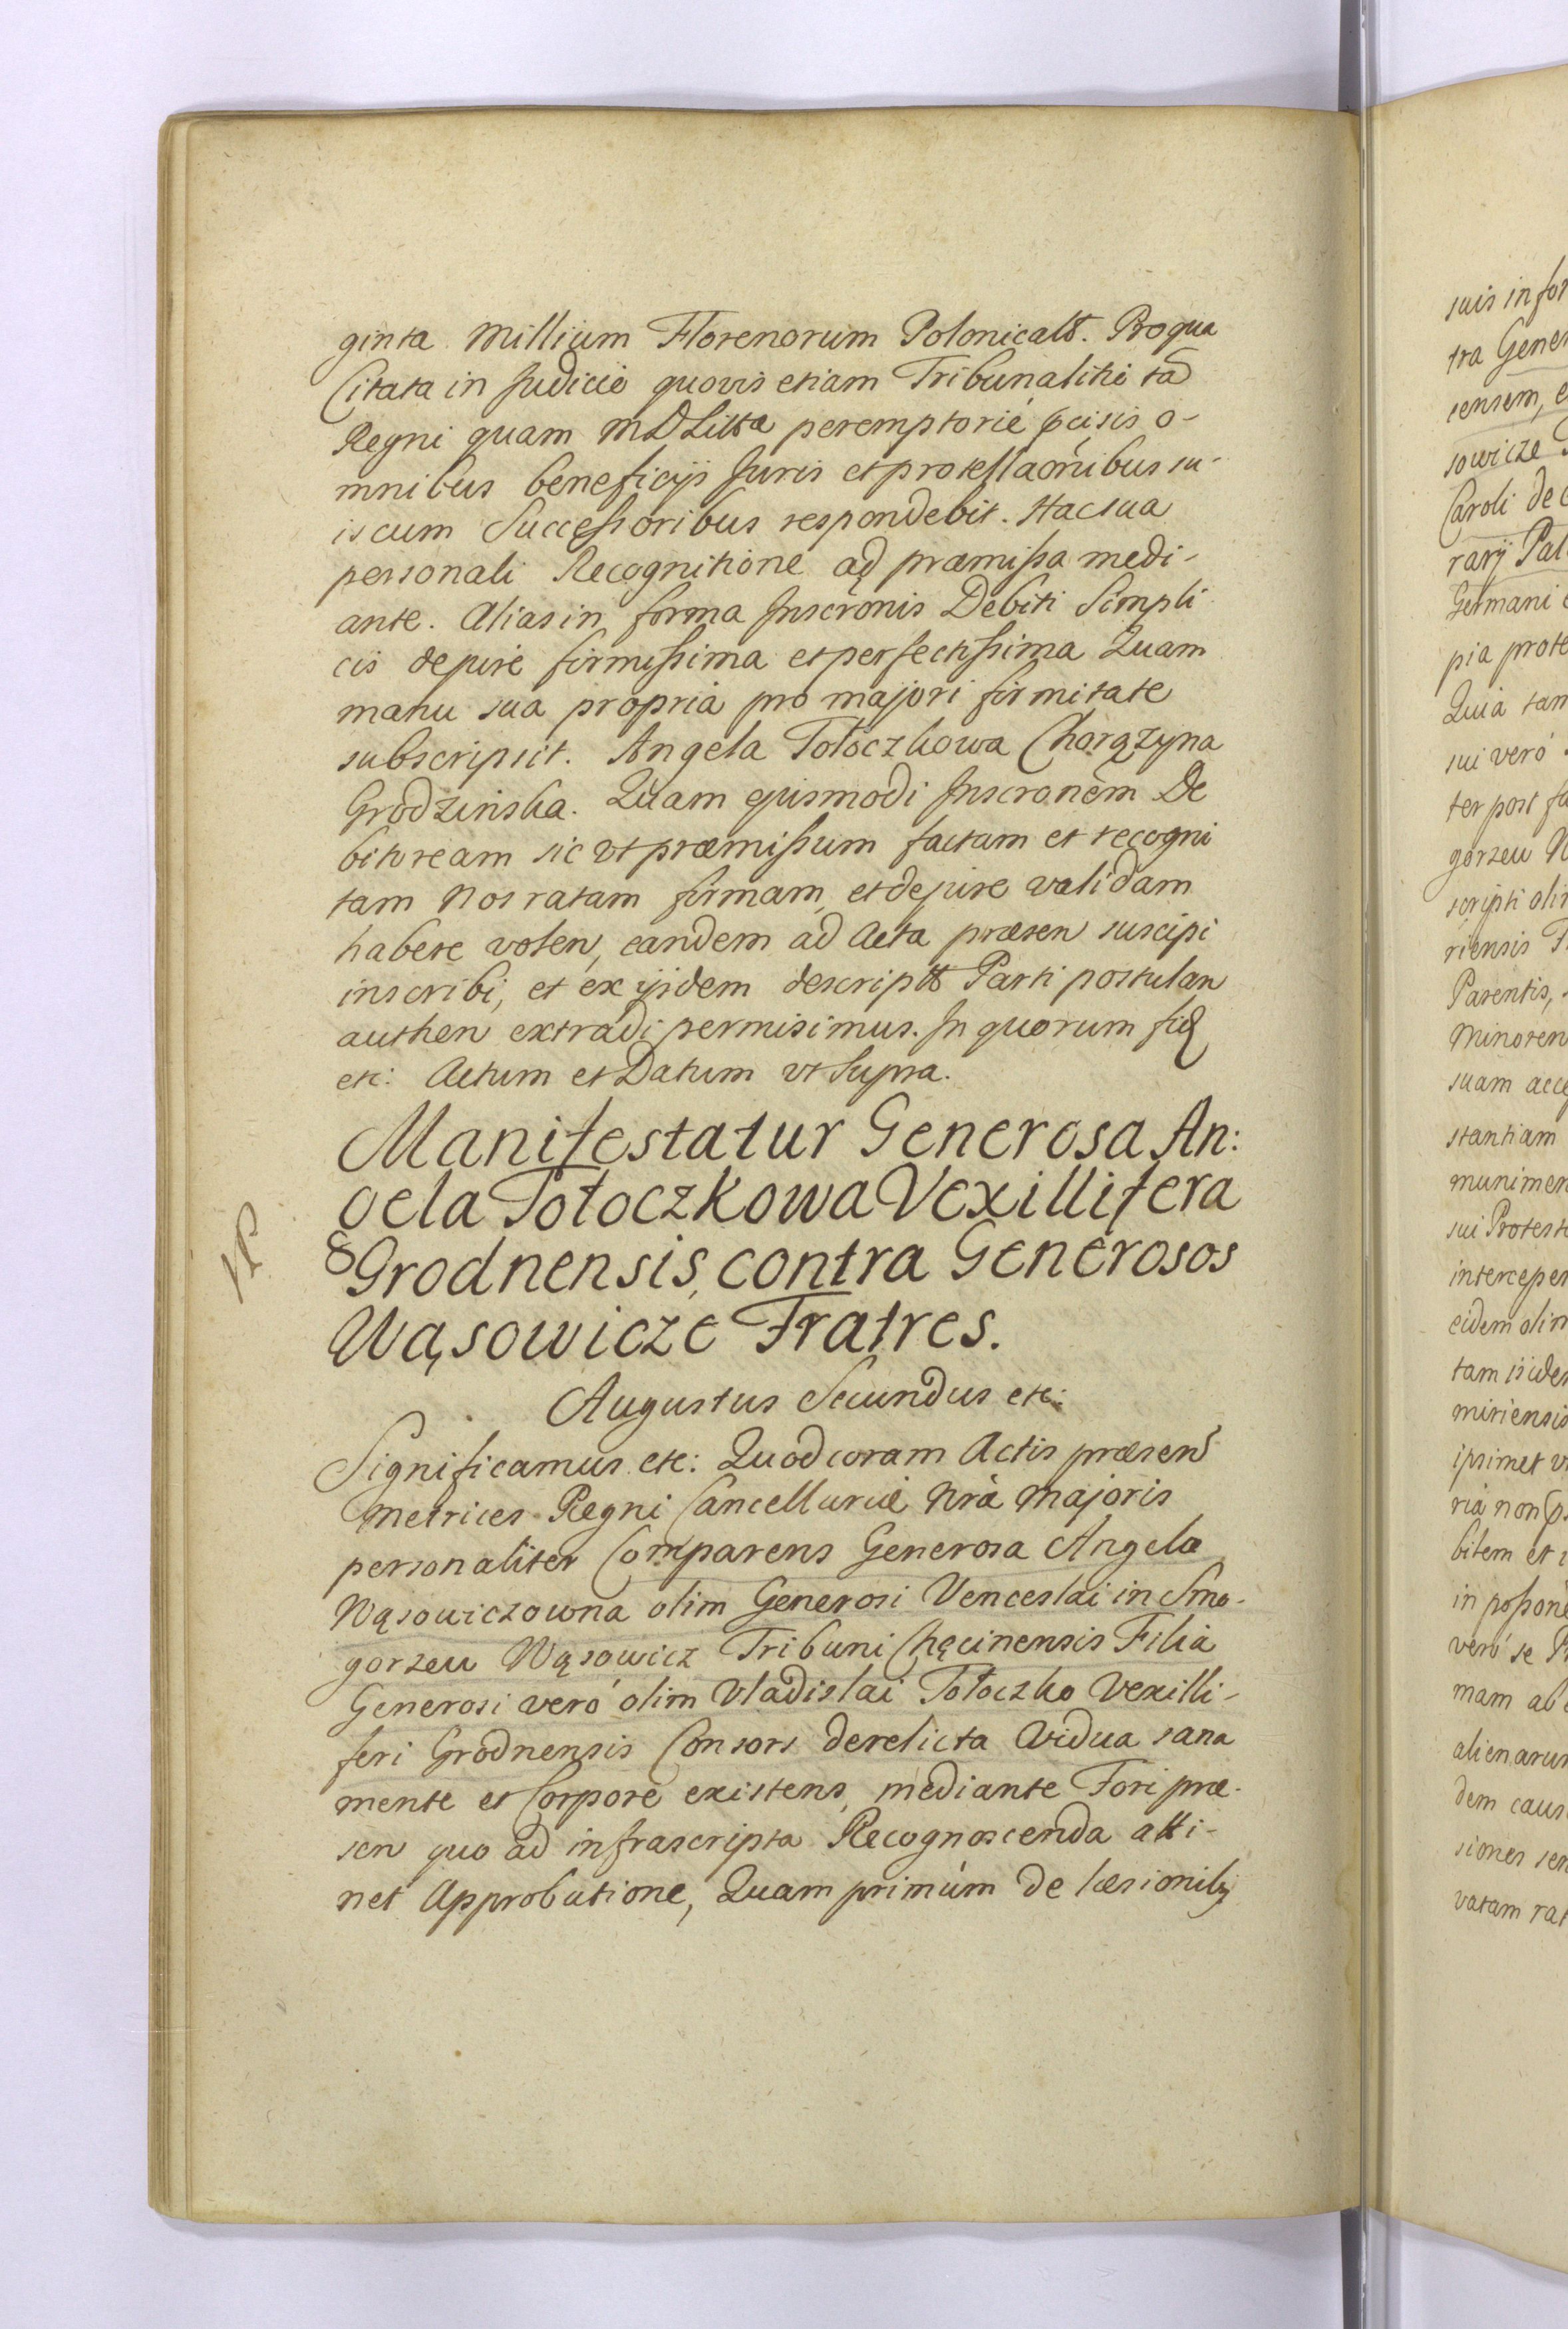 ginta Millium Florenorum Polonicalt. Pro qua
Citata in Judicio quovis etiam Tribunalitio tã
Regni quam M D Litta peremptorié pcisis o-
mnibus beneficijs Juris et protellaõnibus su-
is cum Successoribus respondebit. Hac sua
personali Recognitione ad præmissa medi-
ante. Alias in forma Inscrõnis Debiti Simpli
cis de jure firmissima et perfectissima Quam
manu sua propria pro majori firmitate
subscripsit. Angela Tołoczkowa Chorązyna
Grodzińska. Quam ejusmodi Inscronẽm De
bitoream sic vt præmissum factam et recogni
tam Nos ratam firmam, et de jure validam
habere volen, eandem ad Acta præsen suscipi
inscribi, et ex ijsdem descriptt Parti postulan
authen extradi permisimus. In quorum fid
etc: Actum et Datum vt Supra.
Manifestatur Generosa An:
gela Tołoczkowa Vexillifera
Grodnensis, contra Generosos
Wąsowicze Fratres.
Augustus Secundus etc:
Significamus etc: Quod coram Actis præsen
Metrices Regni Cancellariæ Nrã Majoris
personaliter Comparens Generosa Angela
Wąsowiczowna olim Generosi Venceslai in Smo-
gorzew Wąsowicz Tribuni Chęcinensis Filia
Generosi veró olim Vladislai Tołoczko Vexilli-
feri Grodnensis Consors derelicta Vidua sana
mente et Corpore existens, mediante Fori præ-
sen quo ad infrascripta Recognoscenda atti-
net Approbatione, Quam primúm de læsionibg
suis in for
tra Gener
censem, e
sowicze
Caroli de
rarij Pal
Germani
pia prote
Quia tam
sui veró
ter post fa
gorzew W
scripti oli
riensis F
Parentis,
Minoren
suam acce
stantiam
munimen
sui Protest
interceper
eidem olim
tam ijsdem
miriensis
ipsimet v
ria non
bitem et
in possone
veró se P
mam ab
alienarum
dem caus
siones sen
vatam rat